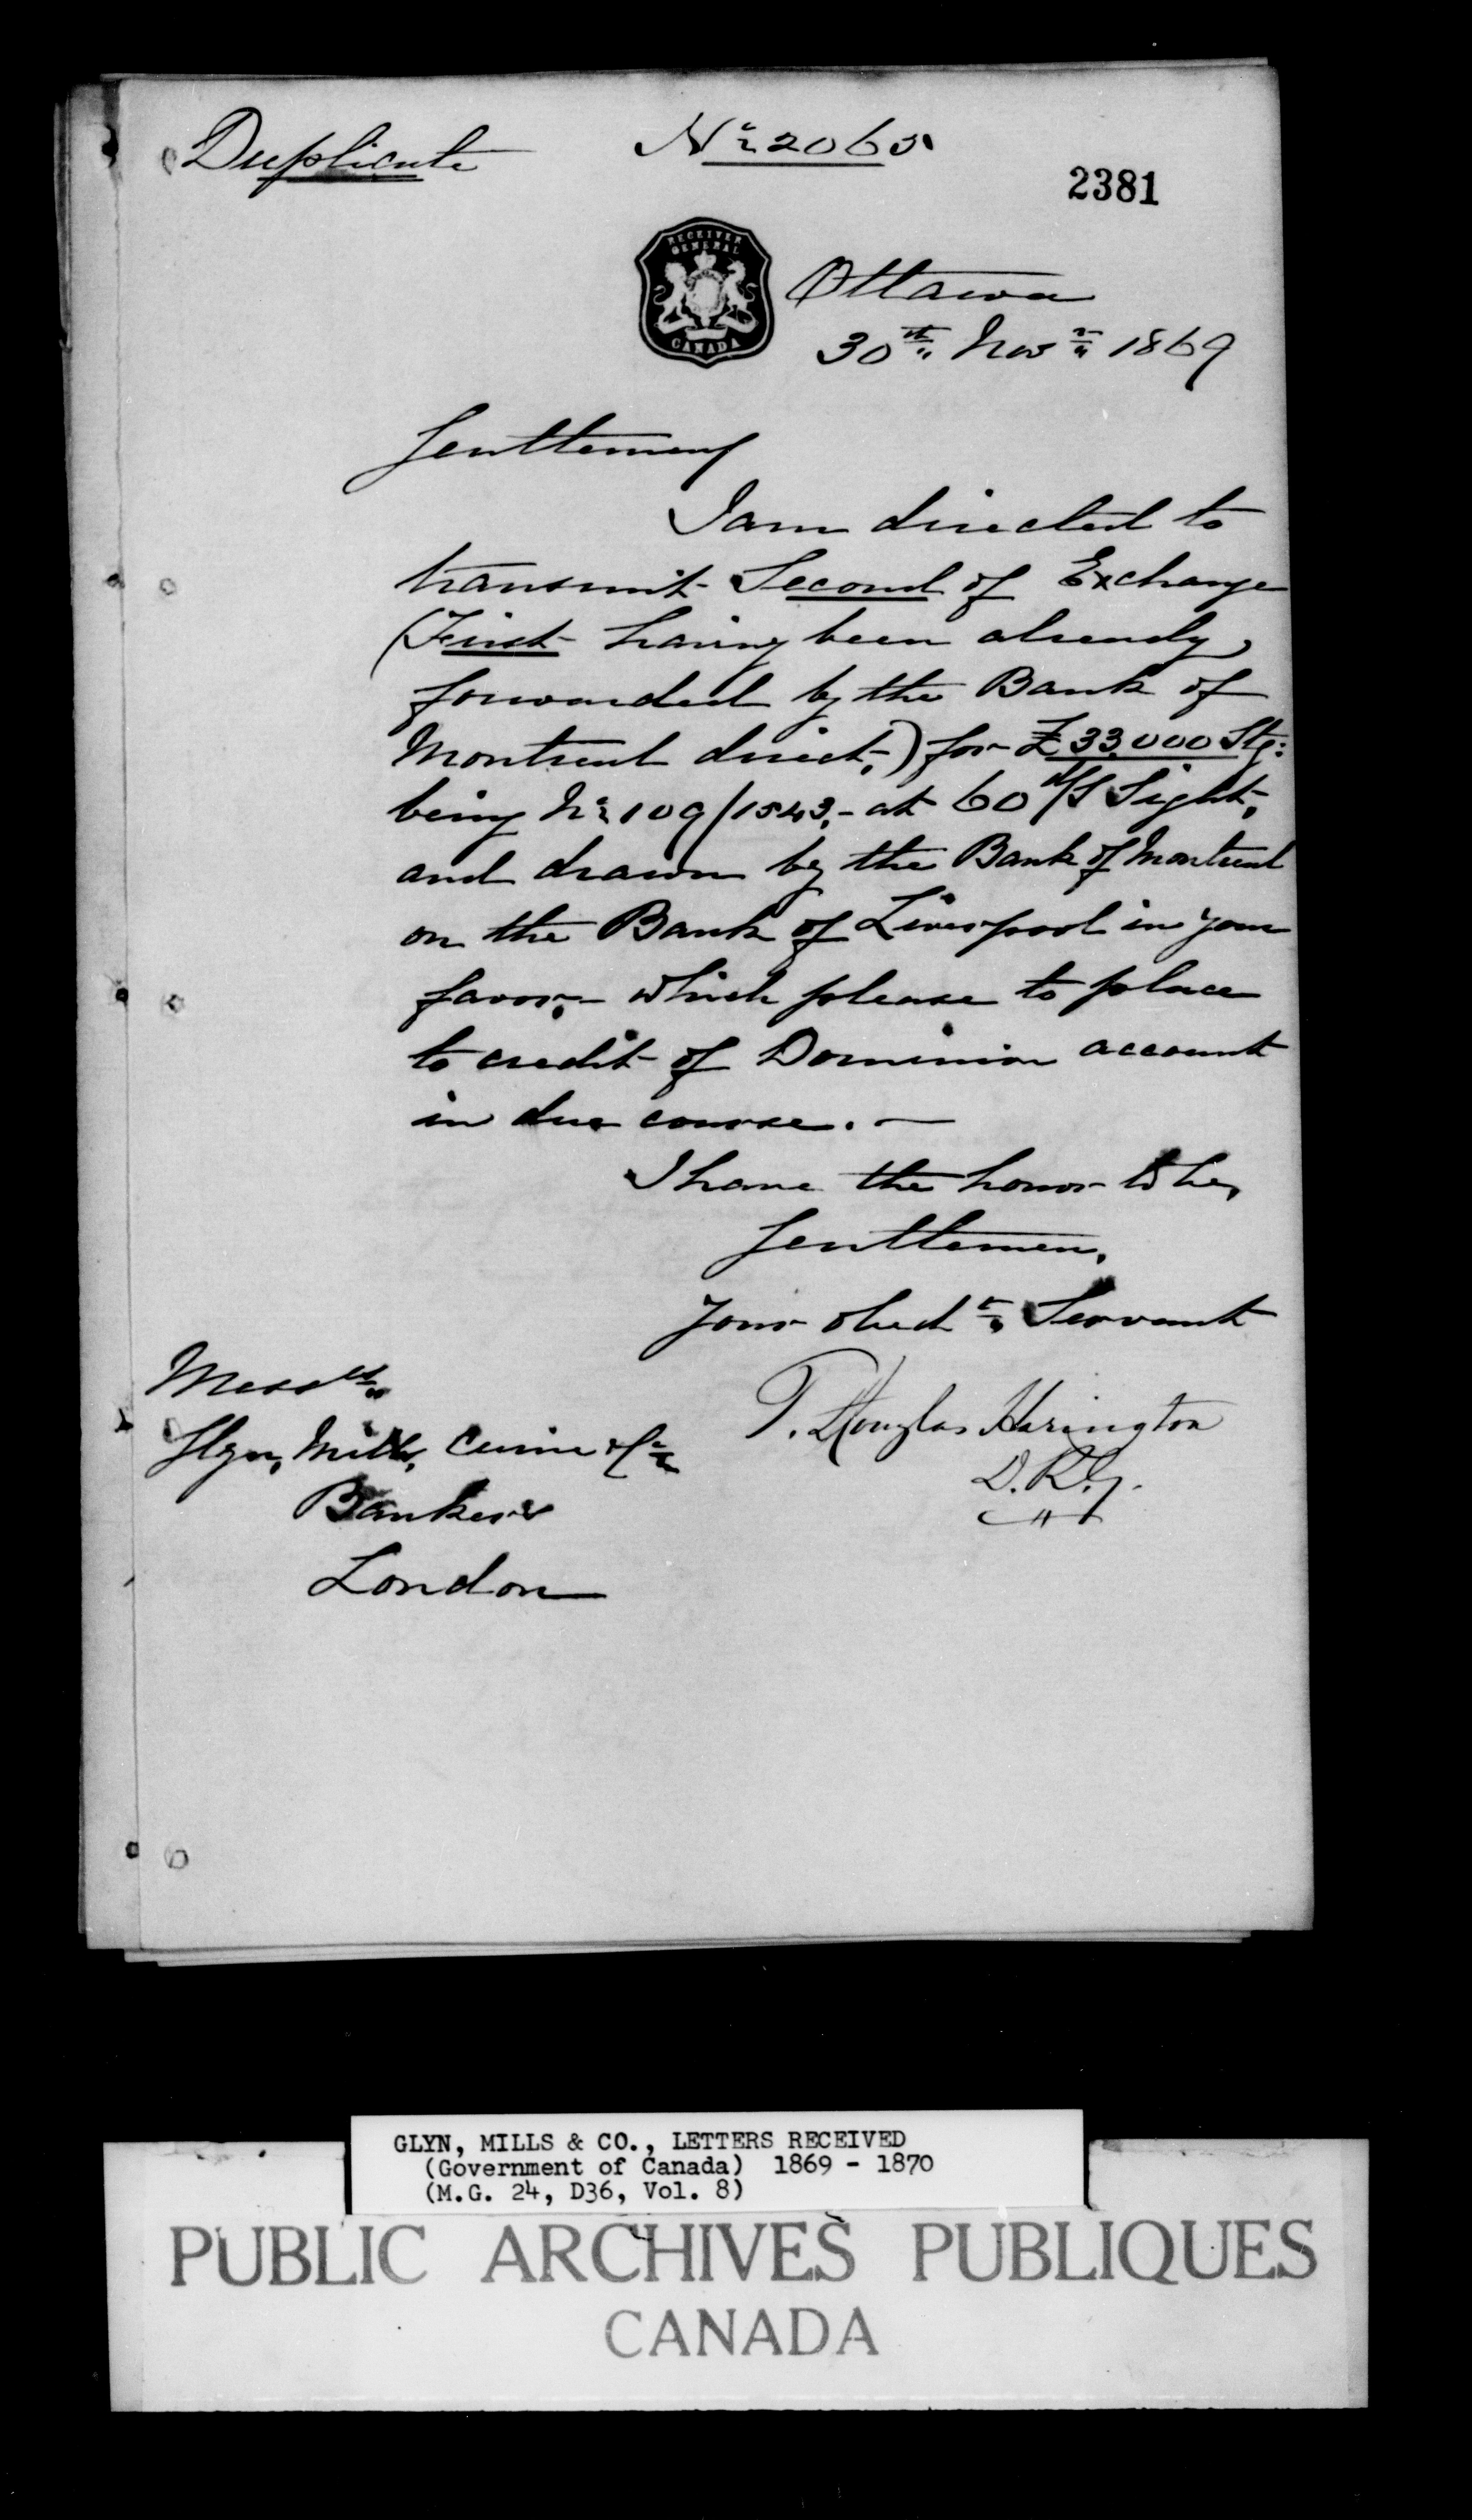 Duplicate
No 2065
2381
RECEIVER
GENERAL
CANADA
Ottawa
30th Novr 1869
Gentlemen
I am directed to
transmit Second of Exchange
(First having been already
forwarded by the Bank of
Montreal direct,) for £33.000 Stg:
being No 109/1543,- at 60 d/s Sight,
and drawn by the Bank of Montreal
on the Bank of Liverpool in your
favor,- which please to place
to credit of Dominion account
in due course. -
I have the honor to be,
Gentlemen,
Your obedt Servant
T. Douglas Harington
D. R. G.
Messrs
Glyn, Mills, Currie & Co
Bankers
London
GLYN, MILLS & CO., LETTERS RECEIVED
(Government of Canada) 1869 - 1870
(M.G. 24, D36, Vol. 8)
PUBLIC ARCHIVES PUBLIQUES
CANADA